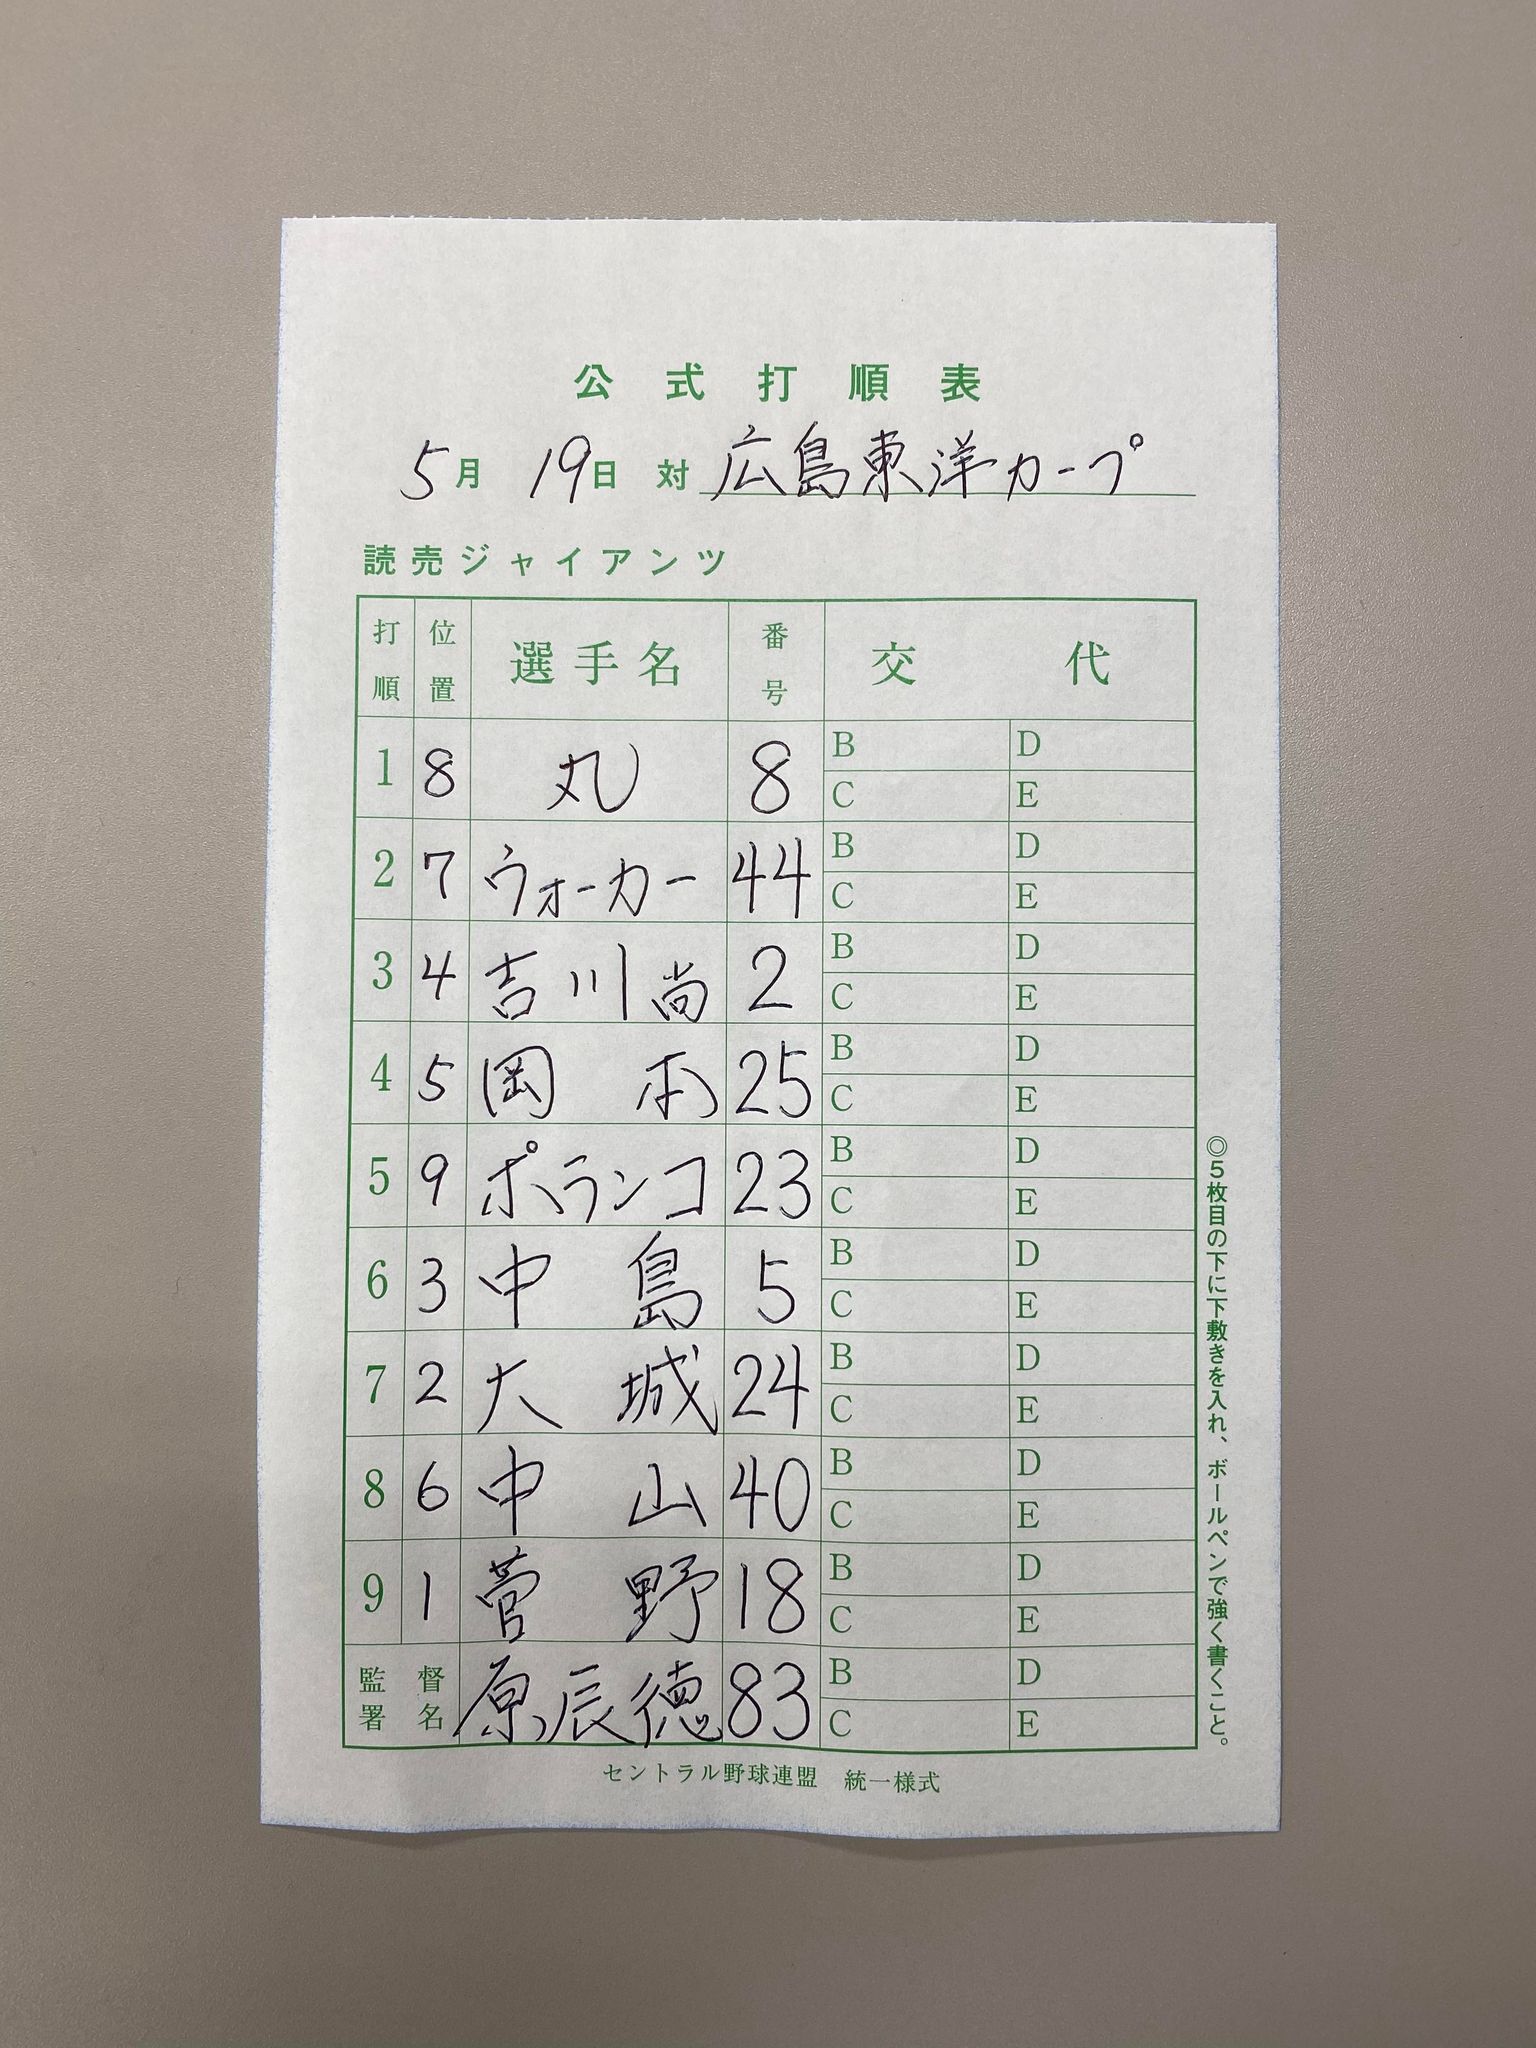 公式打順表
5月 19日 対 広島東洋カープ
読売ジャイアンツ
打順 位置 選手名 番号 交代
1 8 丸 8 B D
C E
2 7 ウォーカー 44 B D
C E
3 4 吉川尚 2 B D
C E
4 5 岡本 25 B D
C E
5 9 ポランコ 23 B D
C E
6 3 中島 5 B D
C E
7 2 大城 24 B D
C E
8 6 中山 40 B D
C E
9 1 菅野 18 B D
C E
監督署名 原辰徳 83 B D
C E
◎5枚目の下に下敷きを入れ、ボールペンで強く書くこと。
セントラル野球連盟 統一様式